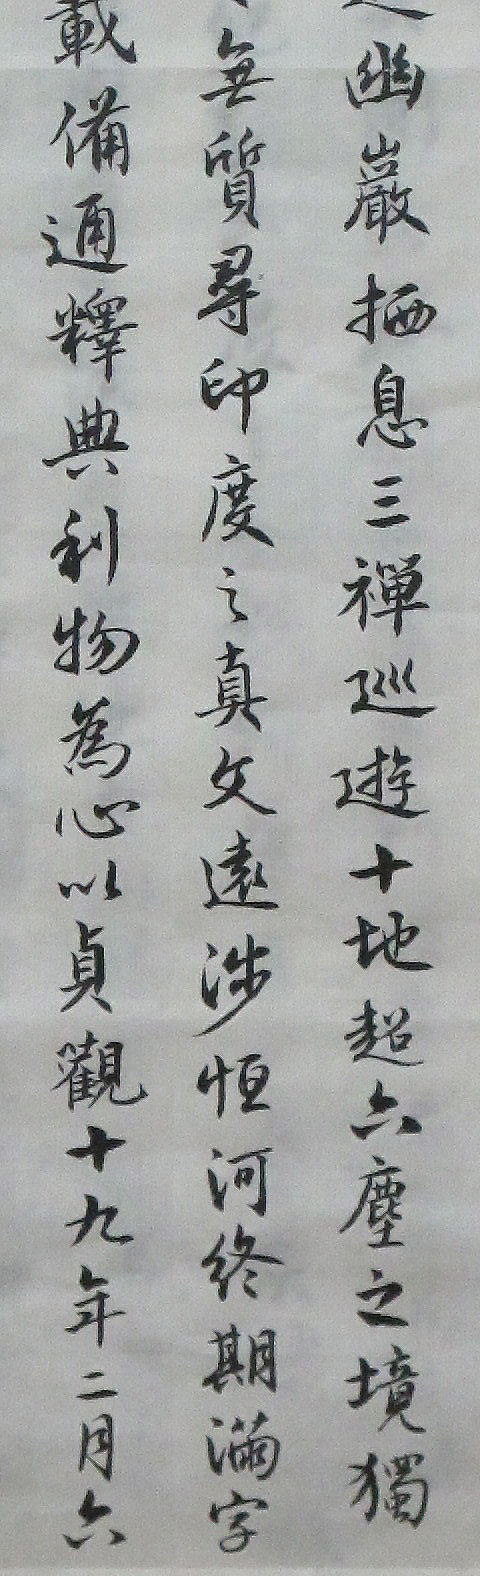 幽巖栖息三禪巡遊十地超六塵之境獨
無質尋印度之真文遠涉恒河終期滿字
載備通釋典利物為心以貞觀十九年二月六